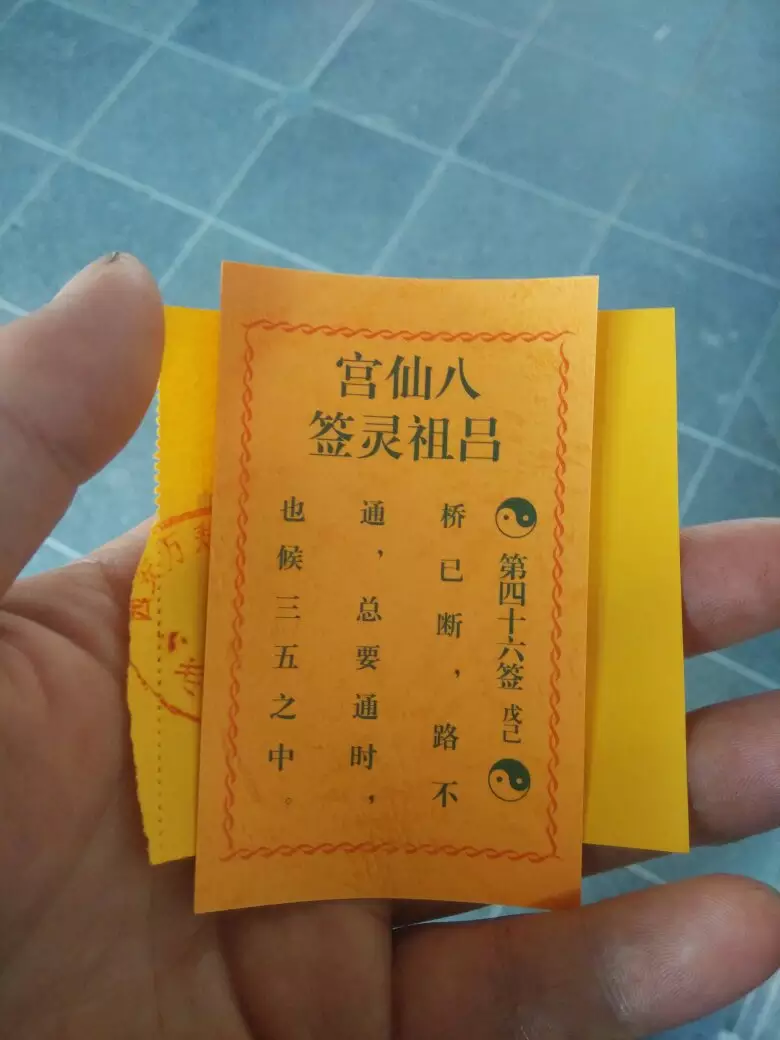 八仙宫
吕祖灵签
第四十六签 戊己
桥已断，路不
通，总要通时，
也候三五之中。